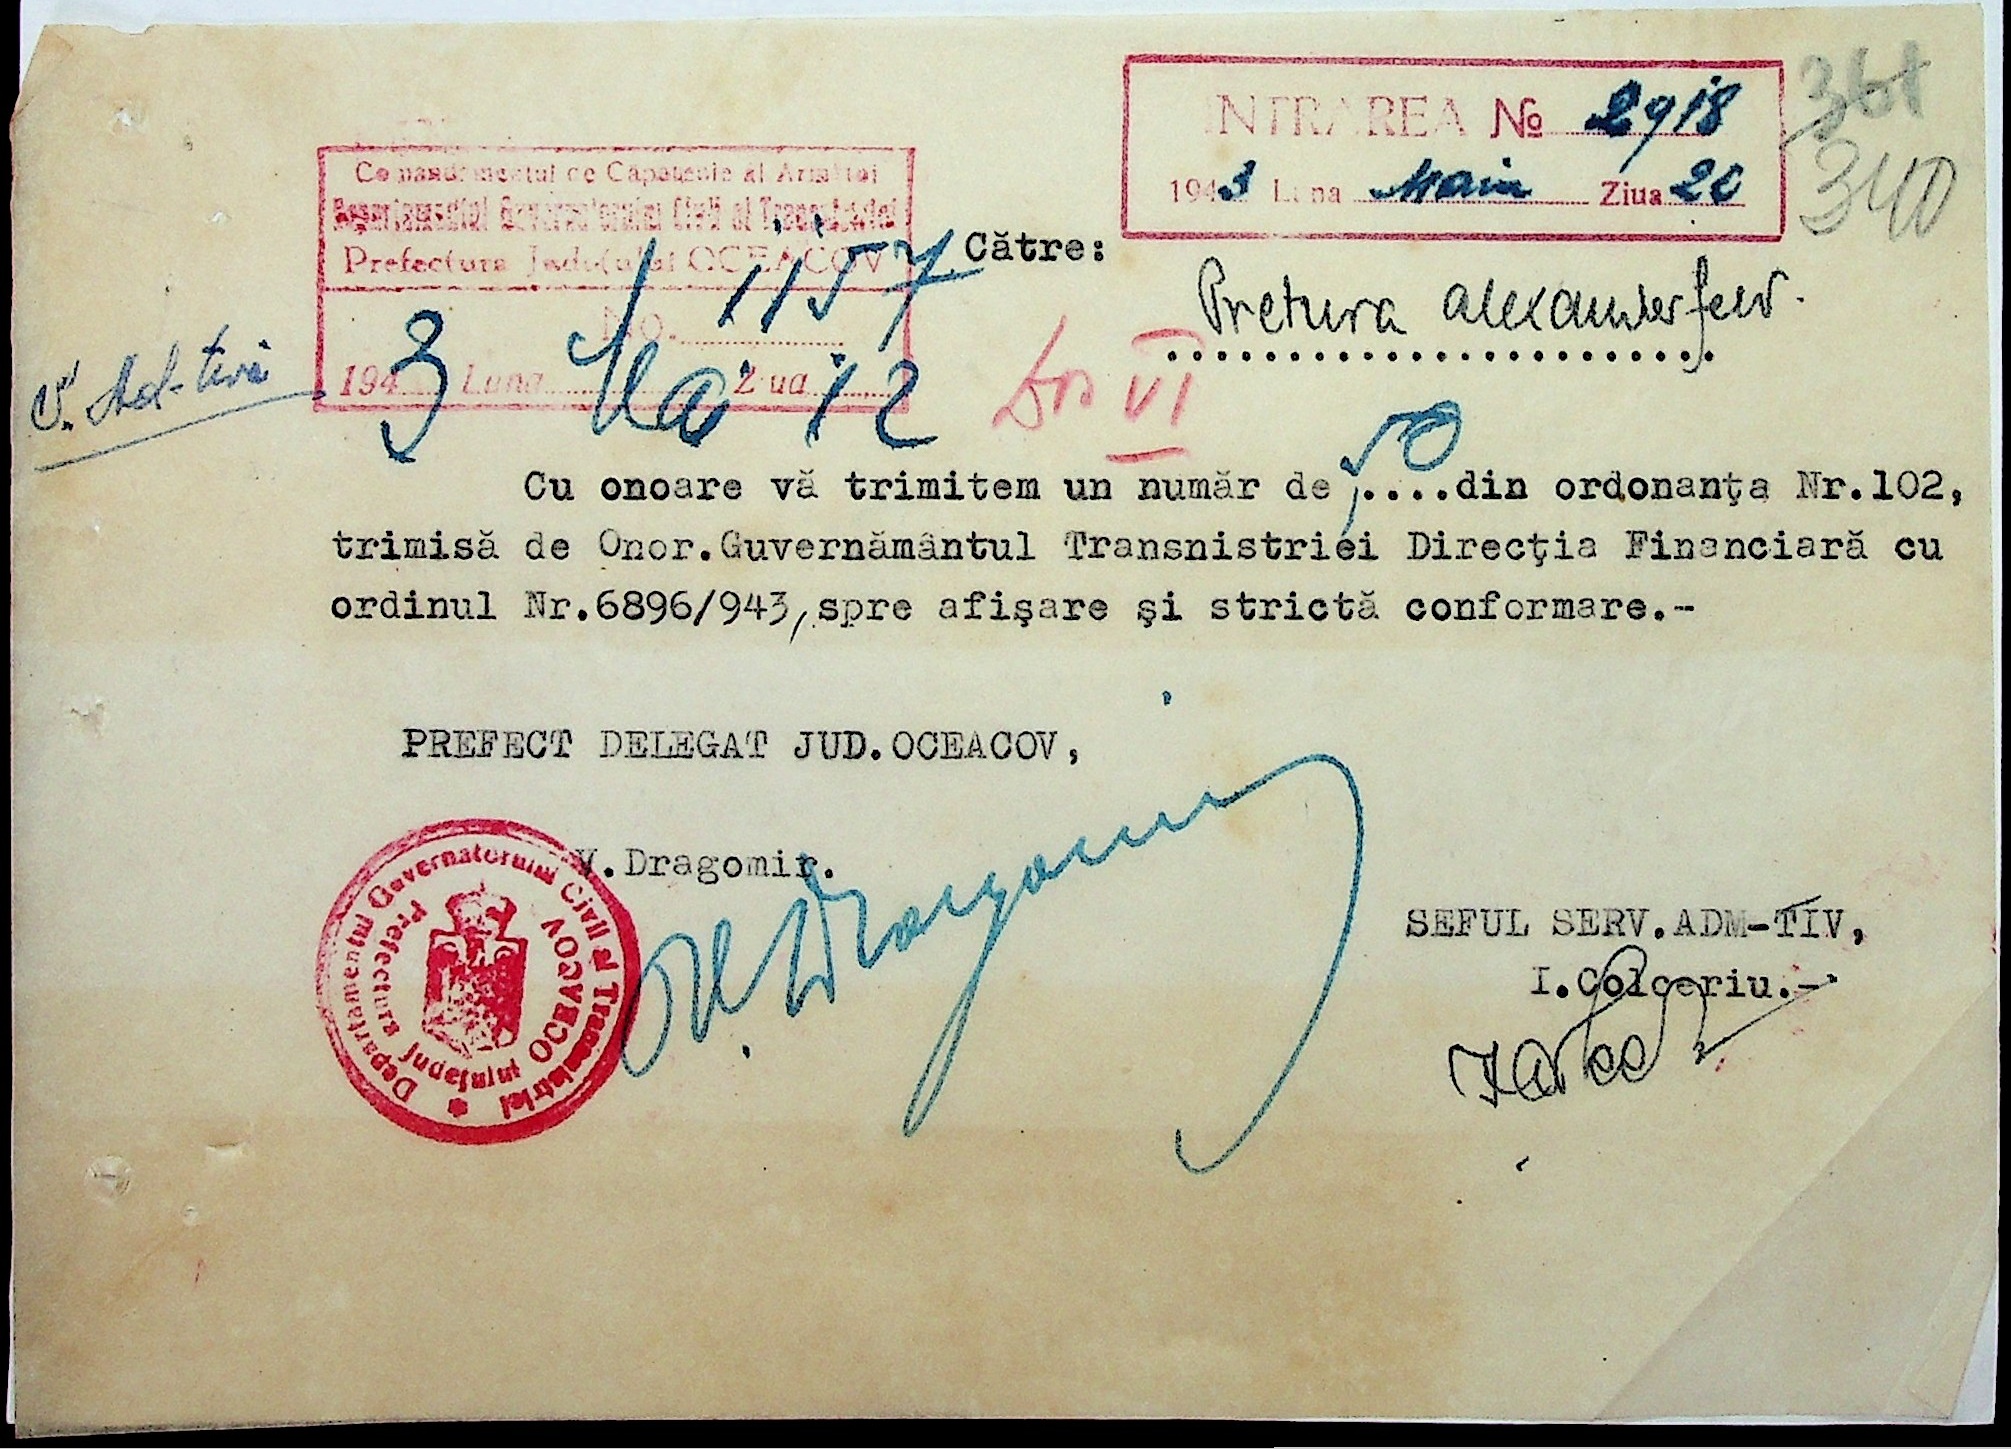 INTRAREA № 2918
1943 Luna Maiu Ziua 20
361
340
Comandamentul de Căpătenie al Armatei
Departamentul Guvernatorului Civil al Transnistriei
Prefectura Județului OCEACOV
No. 11157
1943 Luna Mai Ziua 12
S. Ad-tivă
Către:
Pretura Alexanderfeld.
Dos VI
Cu onoare vă trimitem un număr de 50 ....din ordonanţa Nr.102,
trimisă de Onor.Guvernământul Transnistriei Direcţia Financiară cu
ordinul Nr.6896/943, spre afişare şi strictă conformare.-
PREFECT DELEGAT JUD.OCEACOV,
V.Dragomir.
V. Dragomir
Departamentul Guvernatorului Civil al Transnistriei
Prefectura Județului OCEACOV
SEFUL SERV.ADM-TIV,
I.Colceriu.-